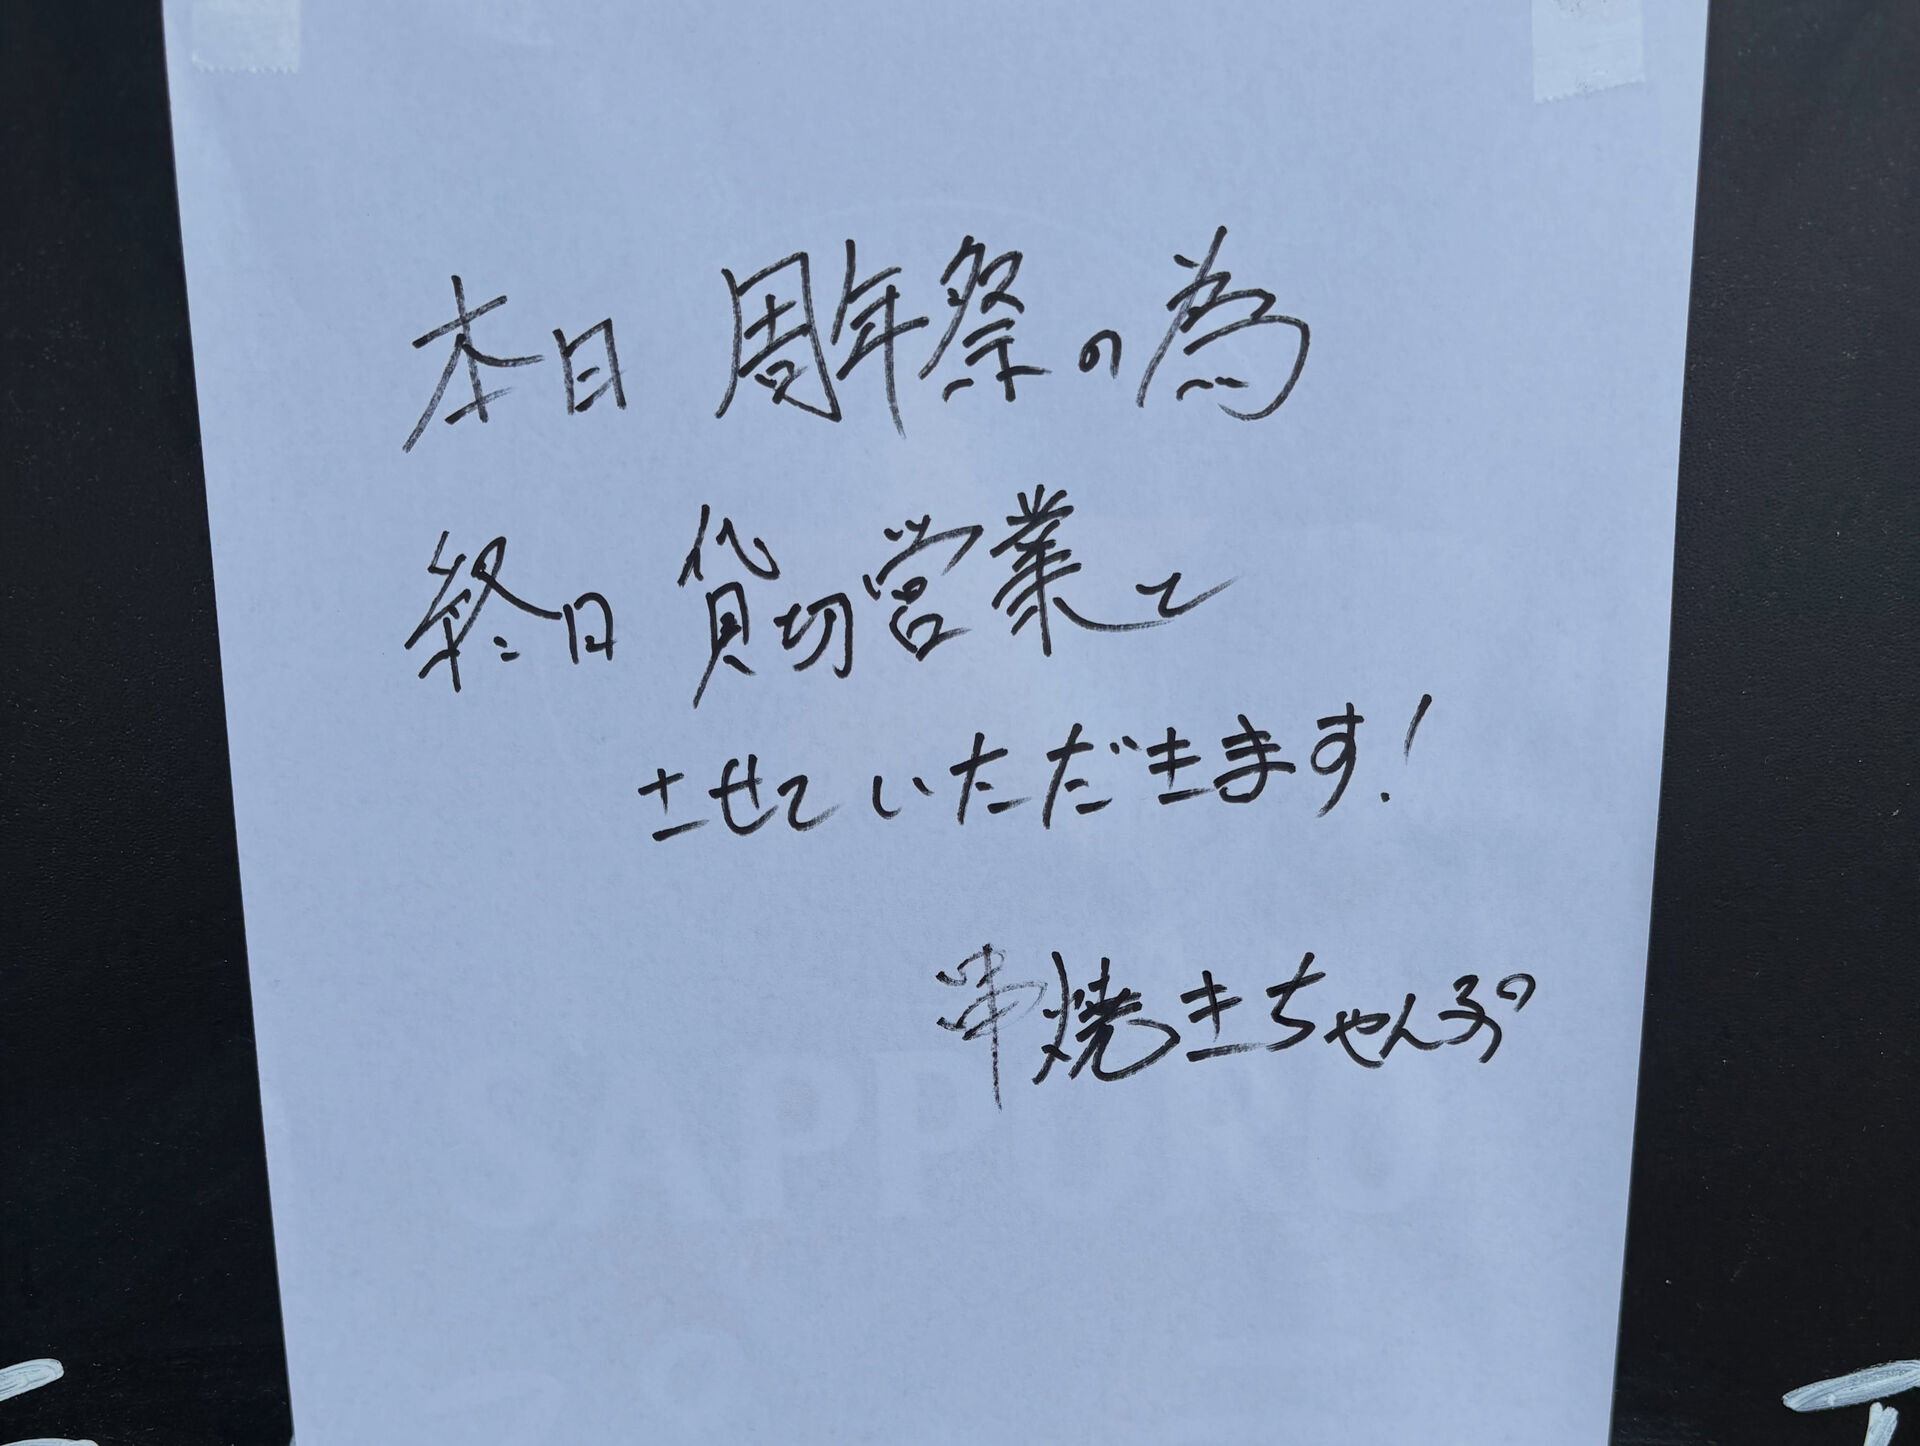 本日 周年祭の為
終日 貸切営業と
させていただきます!
串焼きちゃんぷ
SAPPORO